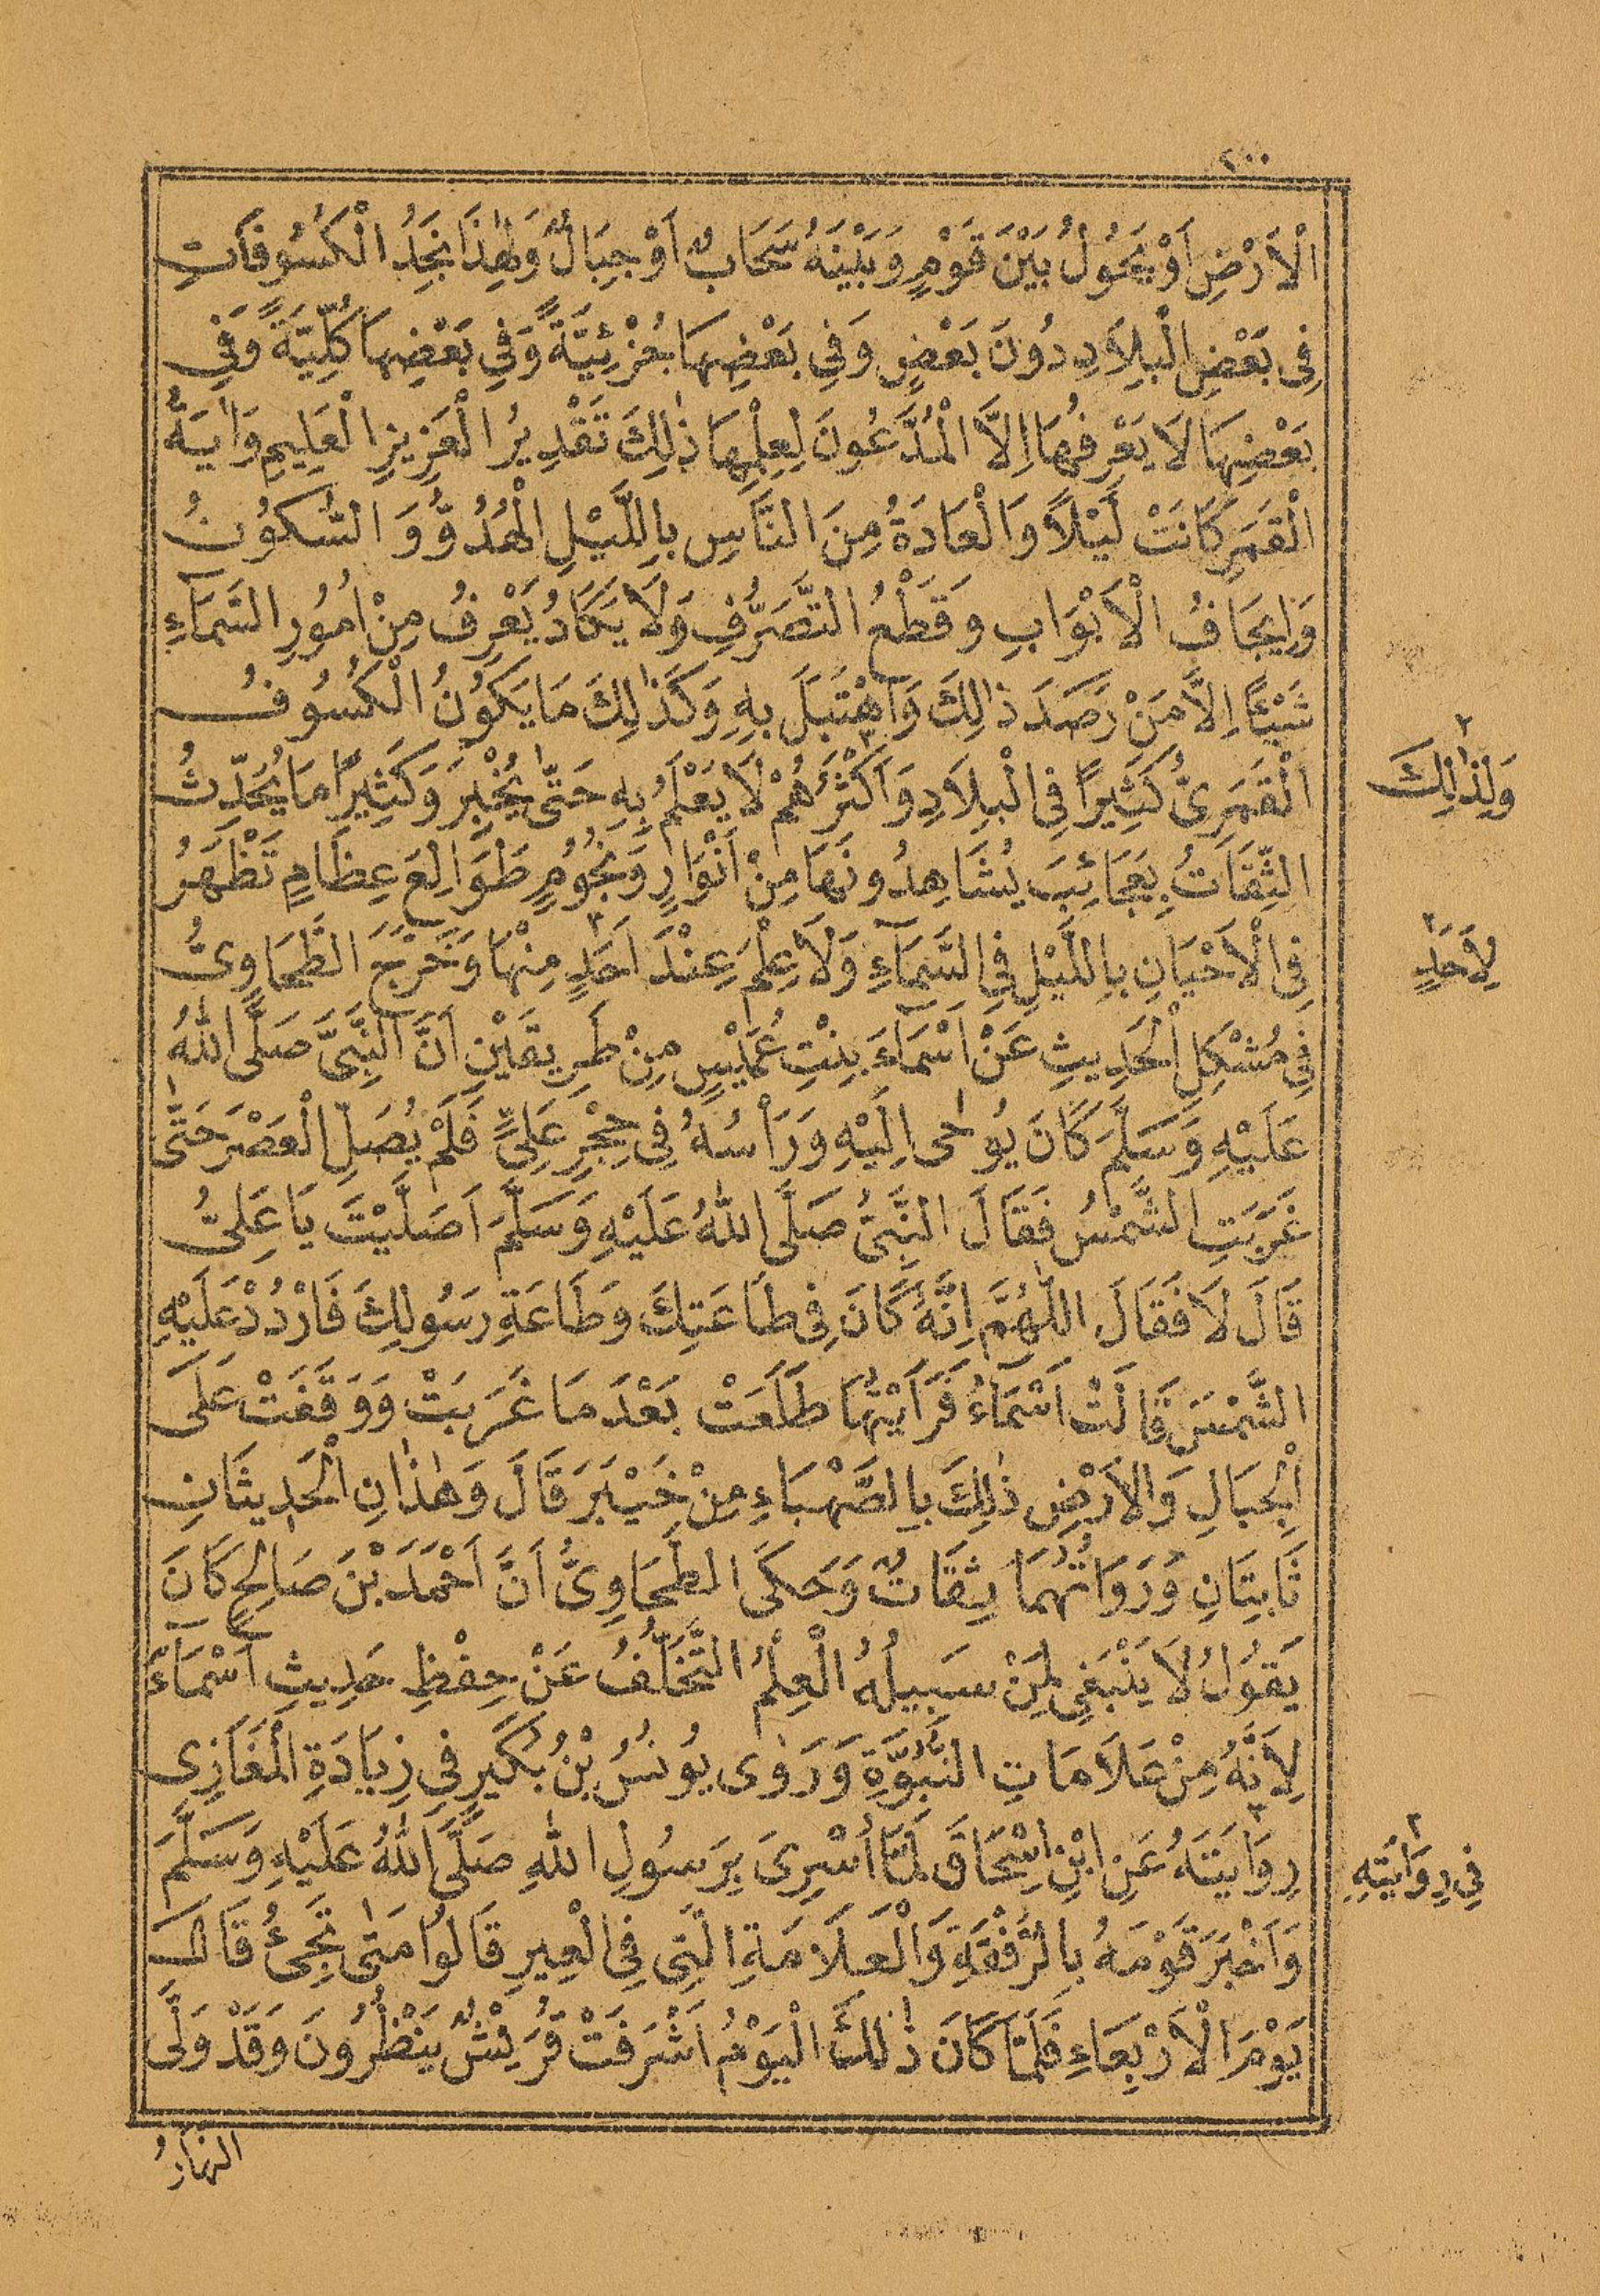 ٢٠٠
الْاَرْضِ اَوْ يَحُولُ بَيْنَ قَوْمٍ وَبَيْنَهُ سَحَابٌ اَوْ جِبَالٌ وَلِهٰذَا نَجِدُ الْكُسُوفَاتِ
فِى بَعْضِ الْبِلَادِ دُونَ بَعْضٍ وَفِى بَعْضِهَا جُزْئِيَّةً وَفِى بَعْضِهَا كُلِّيَّةً وَفِى
بَعْضِهَا لَا يَعْرِفُهَا اِلَّا الْمُدَّعُونَ لِعِلْمِهَا ذٰلِكَ تَقْدِيرُ الْعَزِيزِ الْعَلِيمِ وَاٰيَةُ
الْقَمَرِ كَانَتْ لَيْلًا وَالْعَادَةُ مِنَ النَّاسِ بِاللَّيْلِ الْهُدُوُّ وَ السُّكُونُ
وَاِيجَافُ الْاَبْوَابِ وَقَطْعُ التَّصَرُّفِ وَلَا يَكَادُ يَعْرِفُ مِنْ اُمُورِ السَّمَآءِ
شَيْئًا اِلَّا مَنْ رَصَدَ ذٰلِكَ وَاهْتَبَلَ بِهِ وَكَذٰلِكَ مَا يَكُونُ الْكُسُوفُ
وَلِذٰلِكَ
الْقَمَرِىُّ كَثِيرًا فِى الْبِلَادِ وَاَكْثَرُهُمْ لَا يَعْلَمُ بِهِ حَتّٰى يُخْبَرَ وَكَثِيرًا مَا يُحَدِّثُ
الثِّقَاتُ بِعَجَائِبَ يُشَاهِدُونَهَا مِنْ اَنْوَارٍ وَنُجُومٍ طَوَالِعَ عِظَامٍ تَظْهَرُ
فِى الْاَحْيَانِ بِاللَّيْلِ فِى السَّمَآءِ وَلَا عِلْمَ عِنْدَ اَحَدٍ مِنْهَا وَخَرَّجَ الطَّحَاوِىُّ
لِاَحَدٍ
فِى مُشْكِلِ الْحَدِيثِ عَنْ اَسْمَآءَ بِنْتِ عُمَيْسٍ مِنْ طَرِيقَيْنِ اَنَّ النَّبِىَّ صَلَّى اللّٰهُ
عَلَيْهِ وَسَلَّمَ كَانَ يُوحٰى اِلَيْهِ وَرَاْسُهُ فِى حِجْرِ عَلِىٍّ فَلَمْ يُصَلِّ الْعَصْرَ حَتّٰى
غَرَبَتِ الشَّمْسُ فَقَالَ النَّبِىُّ صَلَّى اللّٰهُ عَلَيْهِ وَسَلَّمَ اَصَلَّيْتَ يَا عَلِىُّ
قَالَ لَا فَقَالَ اللّٰهُمَّ اِنَّهُ كَانَ فِى طَاعَتِكَ وَطَاعَةِ رَسُولِكَ فَارْدُدْ عَلَيْهِ
الشَّمْسَ قَالَتْ اَسْمَآءُ فَرَاَيْتُهَا طَلَعَتْ بَعْدَ مَا غَرَبَتْ وَوَقَفَتْ عَلَى
الْجِبَالِ وَالْاَرْضِ ذٰلِكَ بِالصَّهْبَاءِ مِنْ خَيْبَرَ قَالَ وَهٰذَانِ الْحَدِيثَانِ
ثَابِتَانِ وَرُوَاتُهُمَا ثِقَاتٌ وَحَكَى الطَّحَاوِىُّ اَنَّ اَحْمَدَ بْنَ صَالِحٍ كَانَ
يَقُولُ لَا يَنْبَغِى لِمَنْ سَبِيلُهُ الْعِلْمُ التَّخَلُّفُ عَنْ حِفْظِ حَدِيثِ اَسْمَآءَ
لِاَنَّهُ مِنْ عَلَامَاتِ النُّبُوَّةِ وَرَوٰى يُونُسُ بْنُ بُكَيْرٍ فِى زِيَادَةِ الْمَغَازِى
رِوَايَتَهُ عَنِ ابْنِ اِسْحَاقَ لَمَّا اُسْرِىَ بِرَسُولِ اللّٰهِ صَلَّى اللّٰهُ عَلَيْهِ وَسَلَّمَ
فِى رِوَايَتِهِ
وَاَخْبَرَ قَوْمَهُ بِالرُّفْقَةِ وَالْعَلَامَةِ الَّتِى فِى الْعِيرِ قَالُوا مَتٰى تَجِئُ قَالَ
يَوْمَ الْاَرْبِعَاءِ فَلَمَّا كَانَ ذٰلِكَ الْيَوْمُ اَشْرَفَتْ قُرَيْشٌ يَنْظُرُونَ وَقَدْ وَلَّى
النَّهَارُ